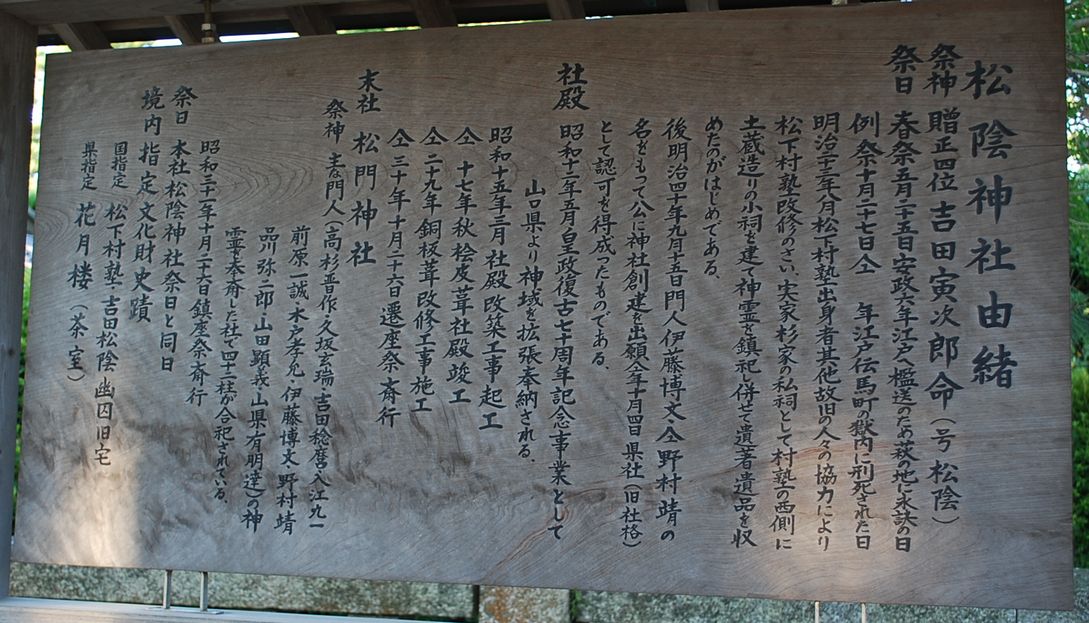 松陰神社由緒
祭神 贈正四位 吉田寅次郎命(号松陰)
祭日 春祭五月二十五日安政六年江戸へ檻送のため萩の地に永訣の日
例祭十月二十七日仝 年江戸伝馬町の獄内に刑死された日
明治二十三年八月松下村塾出身者其他故旧の人々の協力により
松下村塾改修のさい、実家杉家の私祠として村塾の西側に
土蔵造りの小祠を建て神霊を鎮祀し併せて遺著遺品を収
めたのがはじめである。
後明治四十年九月十五日門人伊藤博文・仝野村靖の
名をもって公に神社創建を出願仝年十月四日県社(旧社格)
として認可を得成ったものである。
社殿 昭和十二年五月皇政復古七十周年記念事業として
山口県より神域を拡張奉納される。
昭和十五年三月社殿改築工事起工
仝 十七年秋桧皮葺社殿竣工
仝 二十九年銅板葺改修工事施工
仝 三十年十月二十六日遷座祭斎行
末社 松門神社
祭神 主な門人(高杉晋作・久坂玄瑞・吉田稔麿・入江九一
前原一誠・木戸孝允・伊藤博文・野村靖
品川弥二郎・山田顕義・山県有朋達)の神
霊を奉斎した社で四十二柱が合祀されている。
昭和三十一年十月二十日鎮座祭斎行
祭日 本社松陰神社祭日と同日
境内 指定文化財史蹟
国指定 松下村塾・吉田松陰幽囚旧宅
県指定 花月楼(茶室)